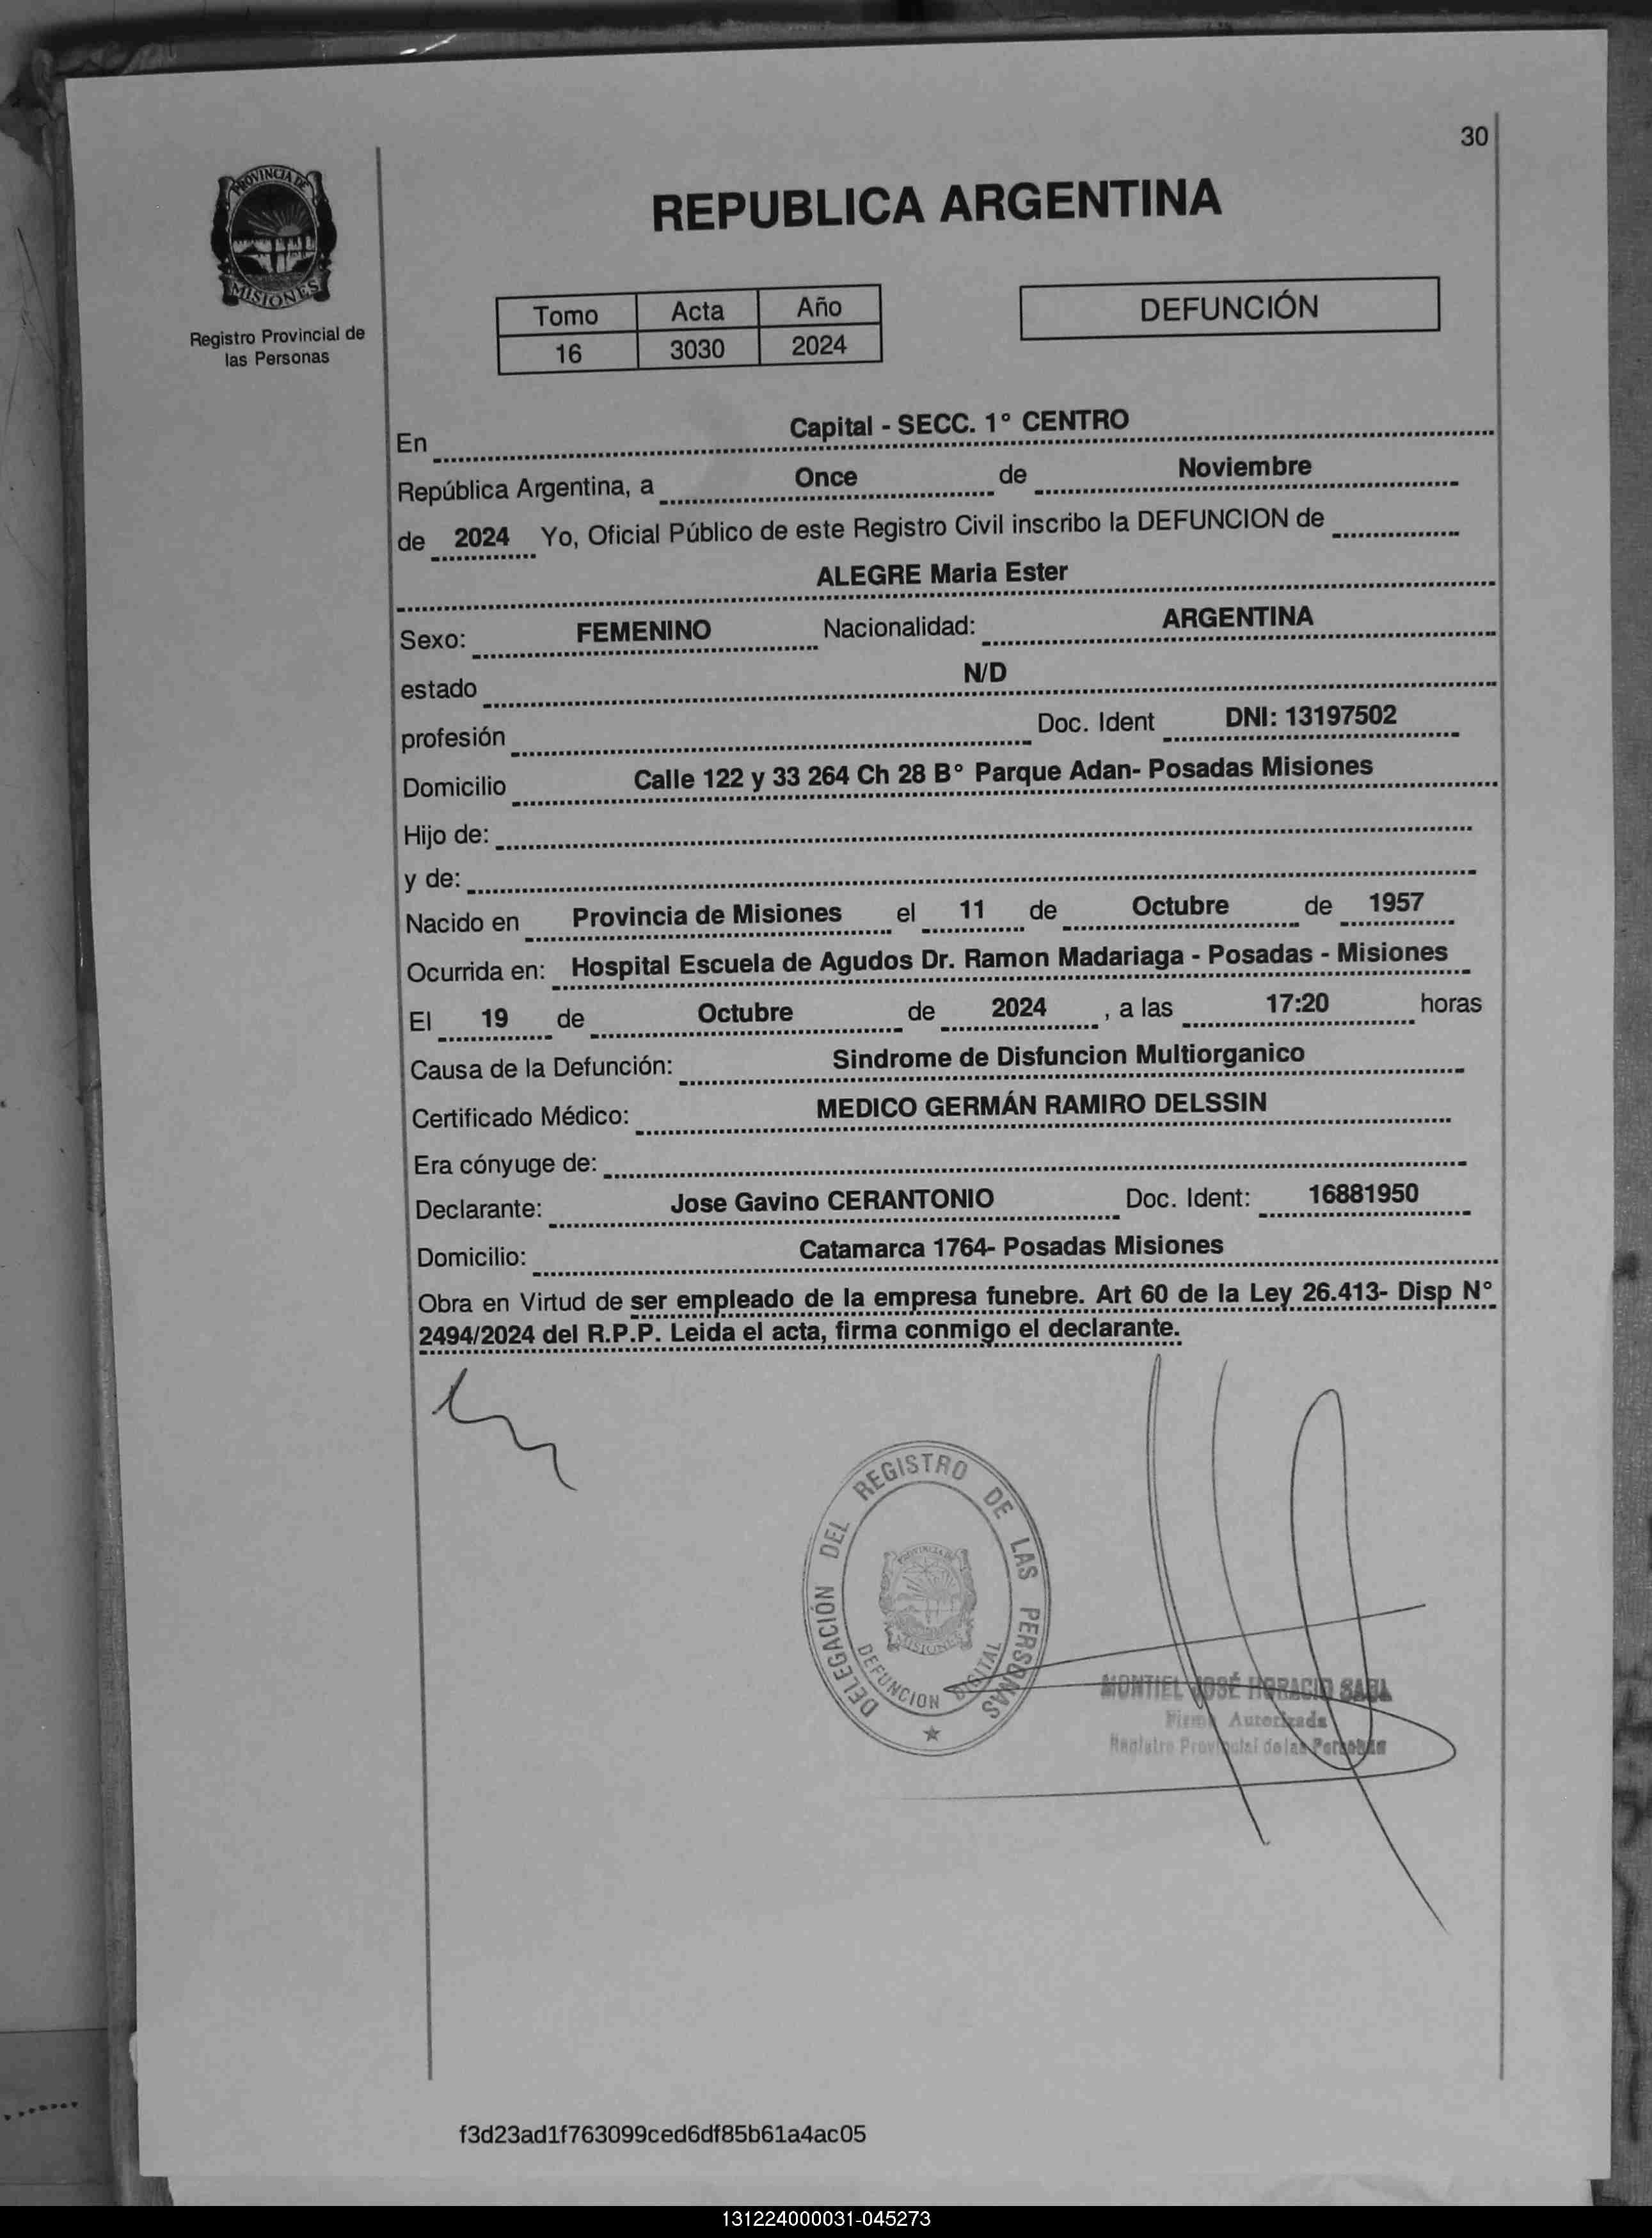 30
PROVINCIA DE
MISIONES
Registro Provincial de
las Personas
REPUBLICA ARGENTINA
Tomo Acta Año
16 3030 2024
DEFUNCIÓN
En Capital - SECC. 1° CENTRO
República Argentina, a Once de Noviembre
de 2024 Yo, Oficial Público de este Registro Civil inscribo la DEFUNCION de
ALEGRE Maria Ester
Sexo: FEMENINO Nacionalidad: ARGENTINA
estado N/D
profesión Doc. Ident DNI: 13197502
Domicilio Calle 122 y 33 264 Ch 28 B° Parque Adan- Posadas Misiones
Hijo de:
y de:
Nacido en Provincia de Misiones el 11 de Octubre de 1957
Ocurrida en: Hospital Escuela de Agudos Dr. Ramon Madariaga - Posadas - Misiones
El 19 de Octubre de 2024 , a las 17:20 horas
Causa de la Defunción: Sindrome de Disfuncion Multiorganico
Certificado Médico: MEDICO GERMÁN RAMIRO DELSSIN
Era cónyuge de:
Declarante: Jose Gavino CERANTONIO Doc. Ident: 16881950
Domicilio: Catamarca 1764- Posadas Misiones
Obra en Virtud de ser empleado de la empresa funebre. Art 60 de la Ley 26.413- Disp N°
2494/2024 del R.P.P. Leida el acta, firma conmigo el declarante.
DELEGACIÓN DEL REGISTRO DE LAS PERSONAS
PROVINCIA DE
MISIONES
DEFUNCION DIGITAL
MONTIEL JOSÉ HORACIO
Firma Autorizada
Registro Provincial de las Personas
f3d23ad1f763099ced6df85b61a4ac05
131224000031-045273